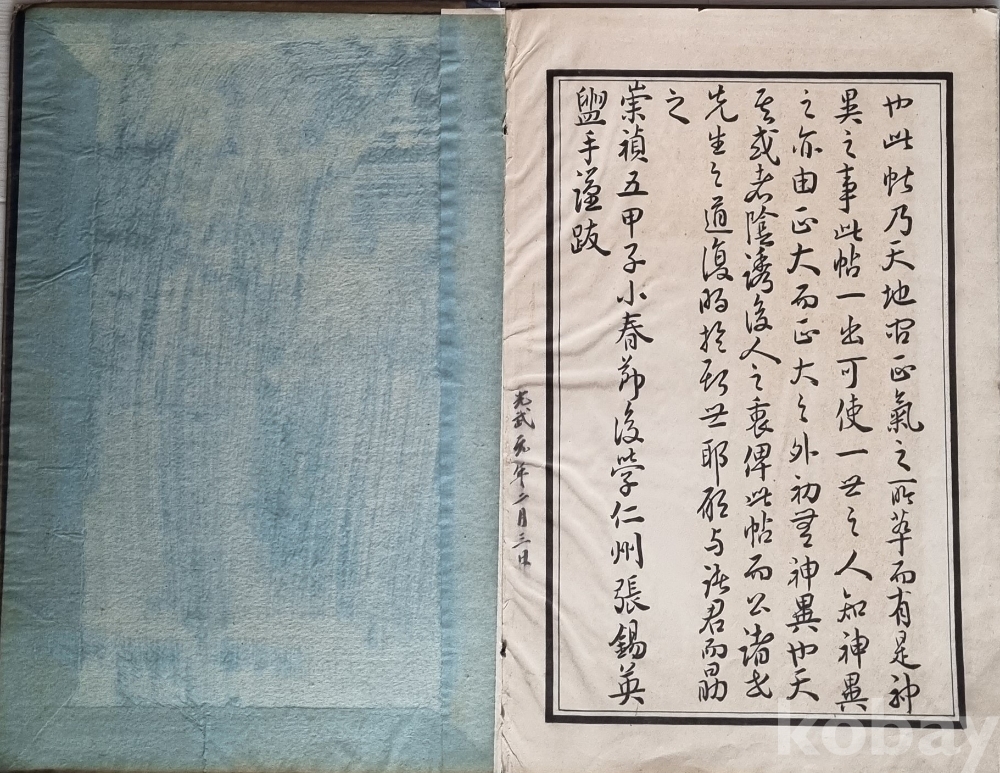 也此帖乃天地間正氣之所萃而有是神
異之事此帖一出可使一世之人知神異
之亦由正大而正大之外初無神異也天
其或者陰誘後人之衷俾此帖而公諸世
先生之道復明於斯世耶願与諸君而勗
之
崇禎五甲子小春節後學仁州張錫英
盥手謹跋
光武元年二月三日
kobay